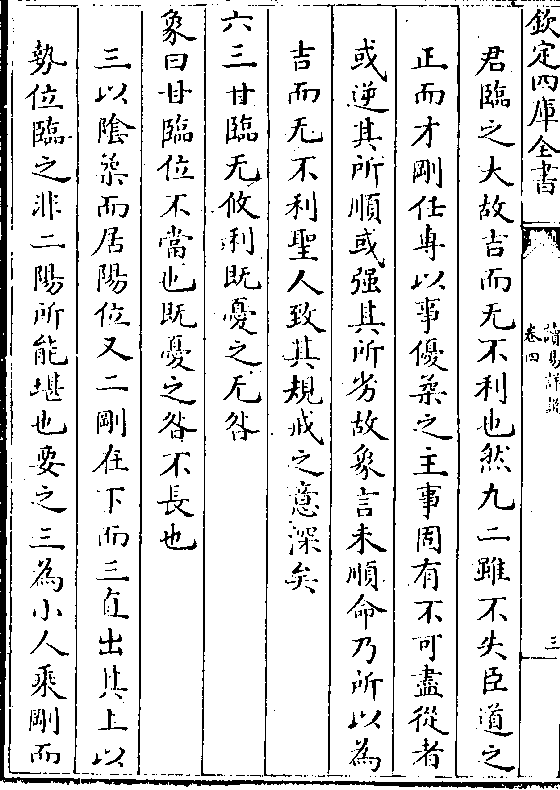 欽定四庫全書
讀易詳說
卷四
三
君臨之大故吉而无不利也然九二雖不失臣道之
正而才剛任專以事優柔之主事固有不可盡從者
或逆其所順或强其所劣故象言未順命乃所以為
吉而无不利聖人致其規戒之意深矣
六三甘臨无攸利既憂之无咎
象曰甘臨位不當也既憂之咎不長也
三以隂柔而居陽位又二剛在下而三直出其上以
勢位臨之非二陽所能堪也要之三為小人乘剛而